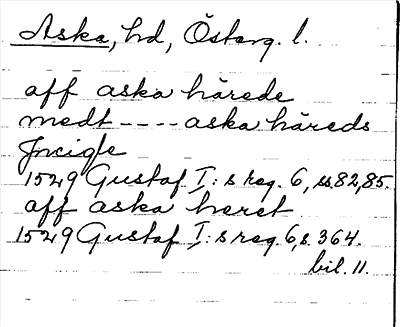 Aska, hd, Östarg. l.
aff aska härede
medt ---- aska häreds
Jncigle
1529 Gustaf I:s reg. 6, ss. 82, 85.
aff aska heret
1529 Gustaf I:s reg. 6, s. 364.
bil. 11.